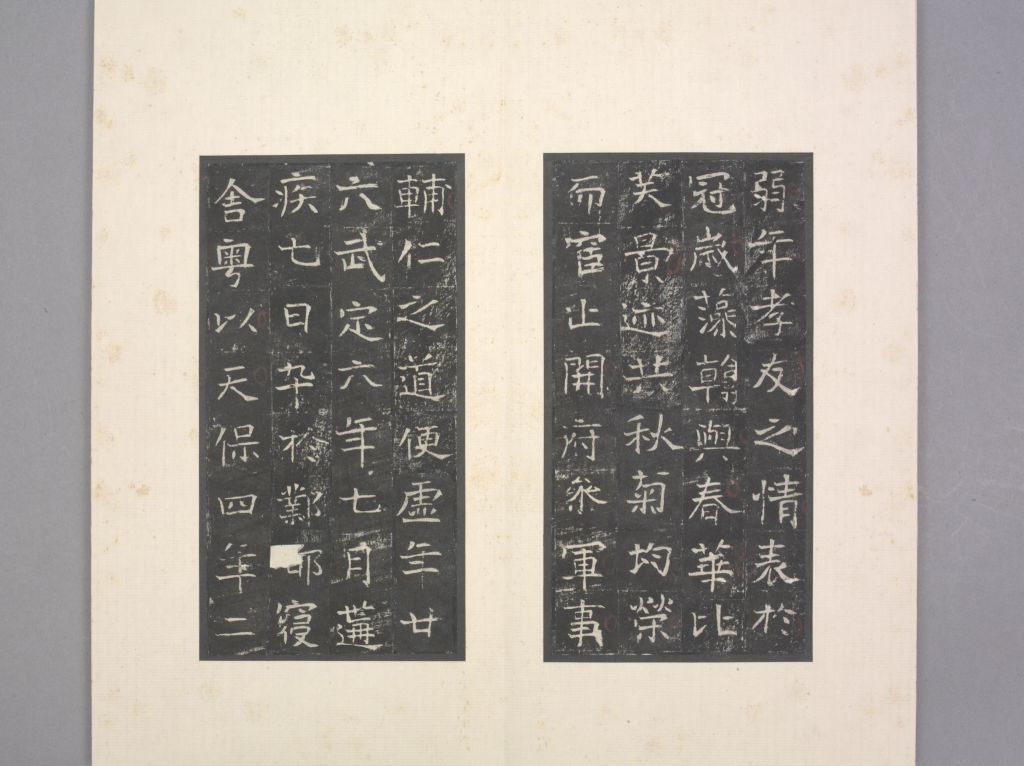 弱年孝友之情表於
冠歲藻翰與春華比
美景迹共秋菊均榮
而宦止開府參軍事
輔仁之道便虛年廿
六武定六年七月遘
疾七日卒於鄴寢
舍粵以天保四年二